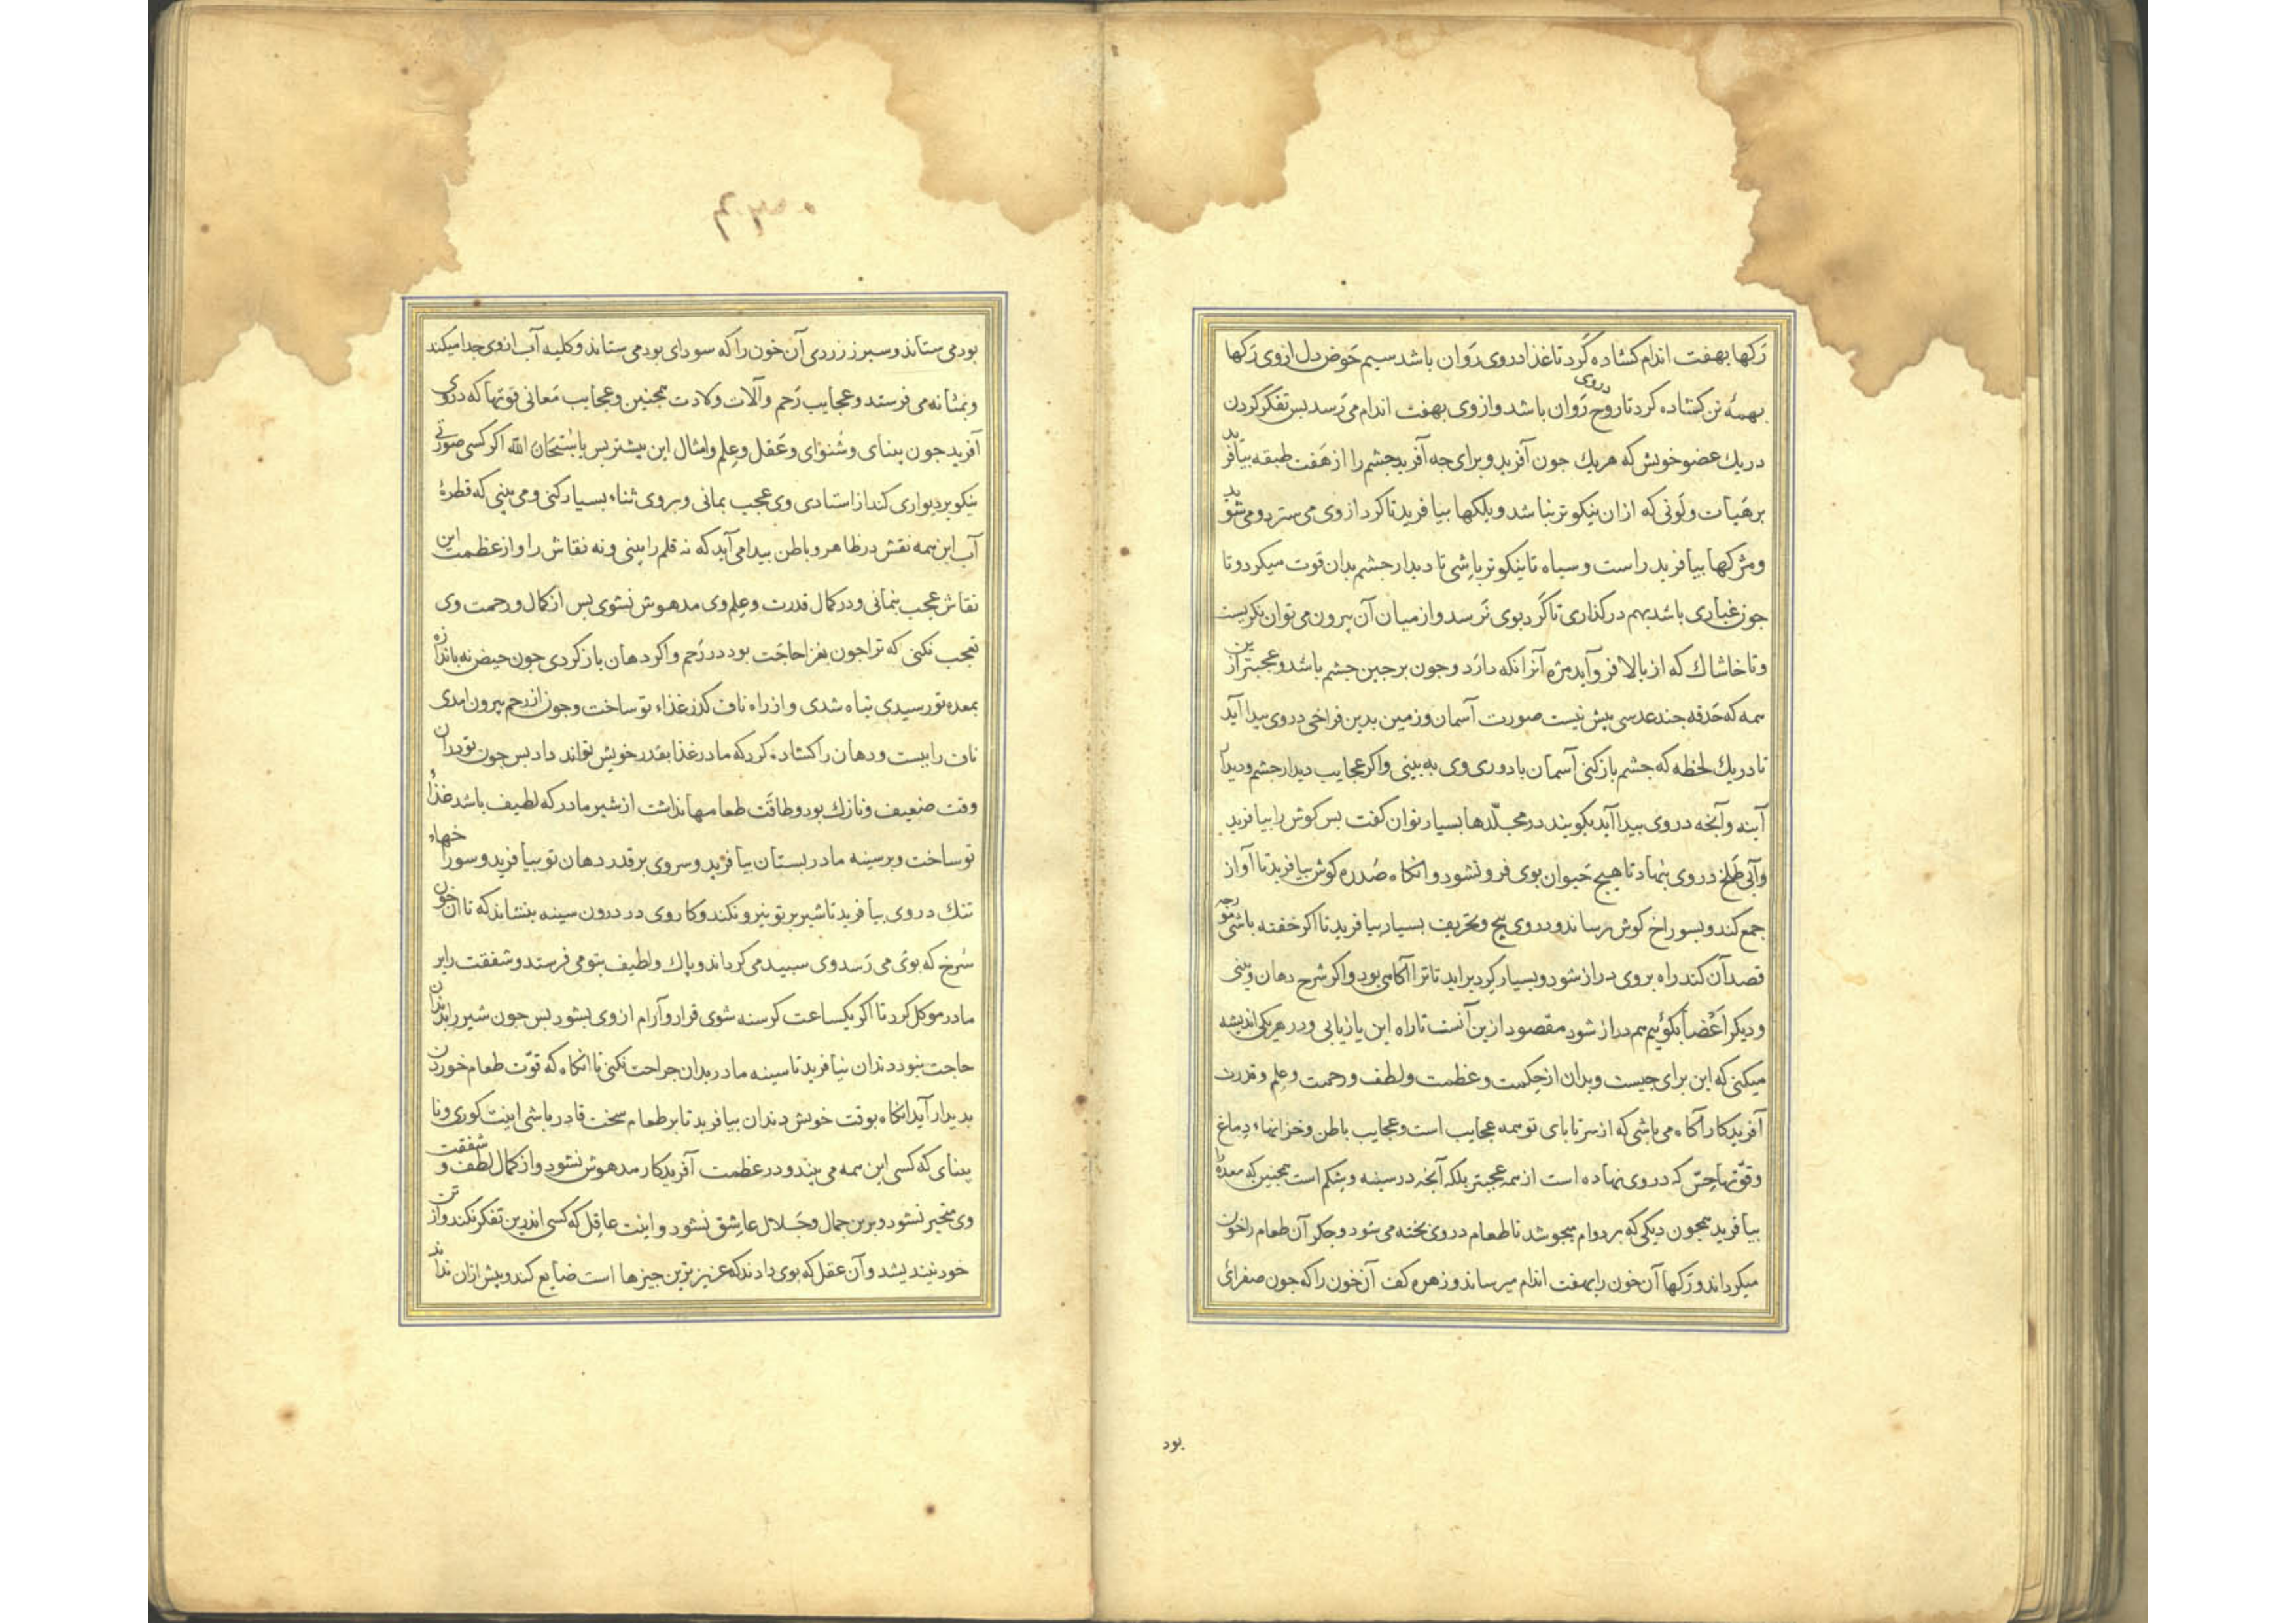 رکها بهفت اندام کشاده کرد تا غذا در وی رَوان باشد سیم حَوض دل از وی رکها
بهمهٔ تن کشاده کرد تا روح در وی رَوان باشد و از وی بهفت اندام می رَسد بس تفکر کردن
در یك عضو خویش که هر یك جون آفرید و برای جه آفرید جشم را از هَفت طبقه بیافرید
بر هَیأت و لَونی که ازان نیکوتر نباشد و بلکها بیافرید تا کرد از وی می سترد و می شوید
و مژکها بیافرید راست و سیاه تا نیکوتر باشی تا دیدار جشم بدان قوت میکرد و تا
جون غباری باشد بهم در کذاری تا کَرد بوی نَرسد و از میان آن بیرون می توان نکریست
و تا خاشاك که از بالا فرو آید مژه آنرا نکه دارد و جون برجین جشم باشد و عجبترین از
همه که حَدقه جند عدسی بیش نیست صورت آسمان و زمین بدین فراخی در وی بیدا آید
تا در یك لحظه که جشم باز کنی آسمان با دوری وی به بینی و اکر عجایب دیدار جشم و دیدار
آینه و آنجه در وی بیدا آید بکویند در مجلّدها بسیار توان کفت بس کوش را بیافرید
و آبی طَلخ در وی بنهاد تا هیج حَیوان بوی فرو نشود و انکاه صُدره کوش بیافرید تا آواز
جمع کند و بسوراخ کوش رساند و در وی بیج و تحریف بسیار بیافرید تا اکر خفته باشی مورجه
قصد آن کند راه بر وی دراز شود و بسیار کرد بر اید تا ترا آکاهی بود و اکر شرح دهان و بینی
و دیکر اَعْضا بکوئیم هم دراز شود مقصود ازین آنست تا راه این بازیابی و در هر یکی اندیشه
میکنی که این برای جیست و بدان از حِکمت و عظمت و لطف و رحمت و عِلم و قدرت
آفریدکار آکاه می باشی که از سر تا بای تو همه عجایب است و عجایب باطن و خزانهاء دِماغ
و قوّتهاء حِسّ که در وی نهاده است از همه عجبتر بلکه آنجه در سینه و شِکم است همجنین که معده را
بیافرید همجون دیکی که بر دوام میجوشد تا طعام در وی بخته می شود و جکر آن طعام را خون
میکرداند و رَکها آن خون را بهفت اندام میرساند و زهره کف آن خون را که جون صفرائی
بود
بود می ستاند و سبرز زردی آن خون را که سودای بود می ستاند و کلیه آب از وی جدا میکند
و بمثانه می فرستد و عجایب رَحم و آلات ولادت همجنین و عجایب مَعانی قوتها که در وی
آفرید جون بینای و شُنوُای و عَقل و عِلم و امثال این بیشتر بس یا سُبْحَان اللّٰه اکر کسی صورتی
نیکو بر دیواری کند از استادی وی عجب بمانی و بر وی ثناء بسیار کنی و می بینی که قطرهٔ
آب این همه نقش در ظاهر و باطن بیدا می آید که نه قلم را بینی و نه نقاش را و از عظمت این
نقاش عجب بنمانی و در کمال قدرت و عِلم وی مدهوش نشوی بس از کمال و رحمت وی
تعجب نکنی که ترا جون بغذا حاجَت بود در رَحم و اکر دهان باز کردی جون حیض نه باندازه
بمعده تو رسیدی تباه شدی و از راه ناف کذر غذاء تو ساخت و جون از رحم بیرون امدی
ناف را ببست و دهان را کشاده کرد که مادر غذا بقدر خویش تواند داد بس جون تو دران
وقت ضعیف و نازك بود و طاقَت طعامها نداشت از شیر مادر که لطیف باشد غذاء
تو ساخت و بر سینه مادر بستان بیافرید و سر وی بر قدر دهان تو بیافرید و سوراخهاء
تنك در وی بیافرید تا شیر بر تو نیرو نکند و کاروی در درون سینه بنشاند که تا آن خون
سُرخ که بوی می رَسد وی سبید می کرداند و باك و لطیف بتو می فرستد و شفقت را بر
مادر موکل کرد تا اکر یکساعت کرسنه شوی قرار و آرام از وی بشود بس جون شیر را بدندان
حاجت نبود دندان نیافرید تا سینه مادر بدان جراحت نکنی تا انکاه که قوّت طعام خوردن
بدیدار آید انکاه بوقت خویش دندان بیافرید تا بر طعام سخت قادر باشی اینت کوری و نا
بینای که کسی این همه می بیند و در عظمت آفریدکار مدهوش نشود و از کمال لطف و شفقت
وی متحیر نشود و برین جمال و جَلال عاشق نشود و اینت غافِل که کسی اندرین تفکر نکند و از تن
خود نیندیشد و آن عقل که بوی دادند که عزیزترین جیزها است ضایع کند و بیش ازان نداند